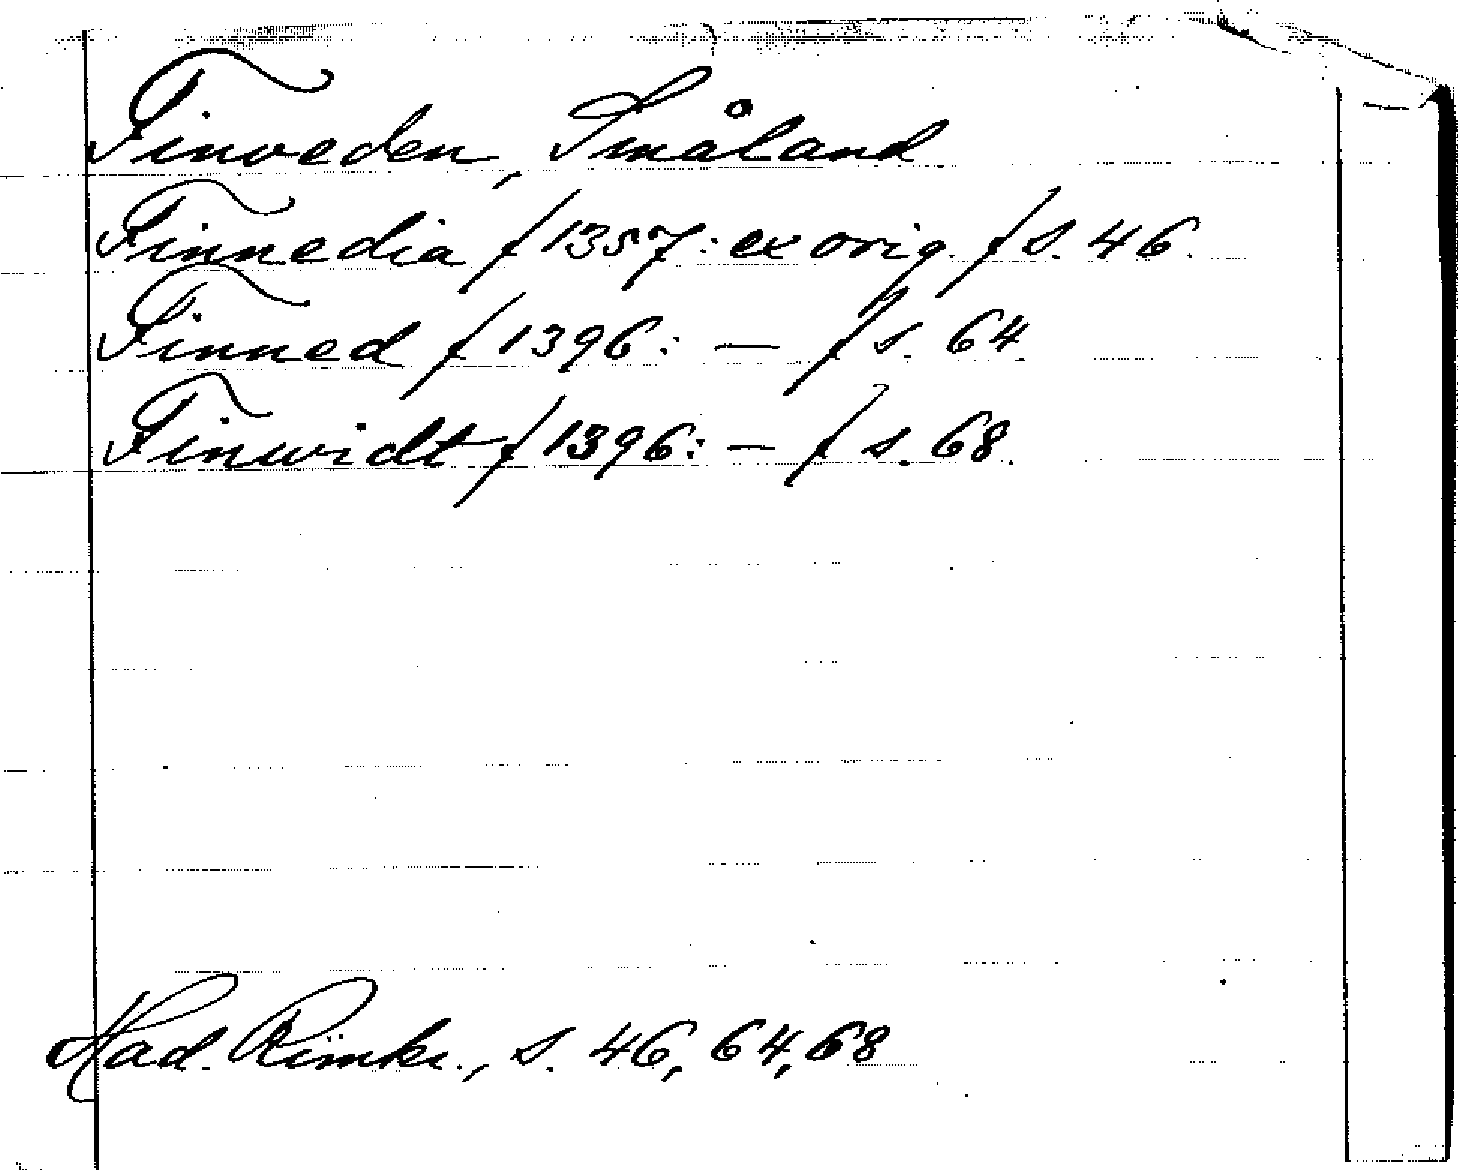 Finveden, Småland
Finnedia /1357: ex orig./ s. 46.
Finned /1396: — / s. 64.
Finwidt /1396: — / s. 68.
Had. Rimkr., s. 46, 64, 68